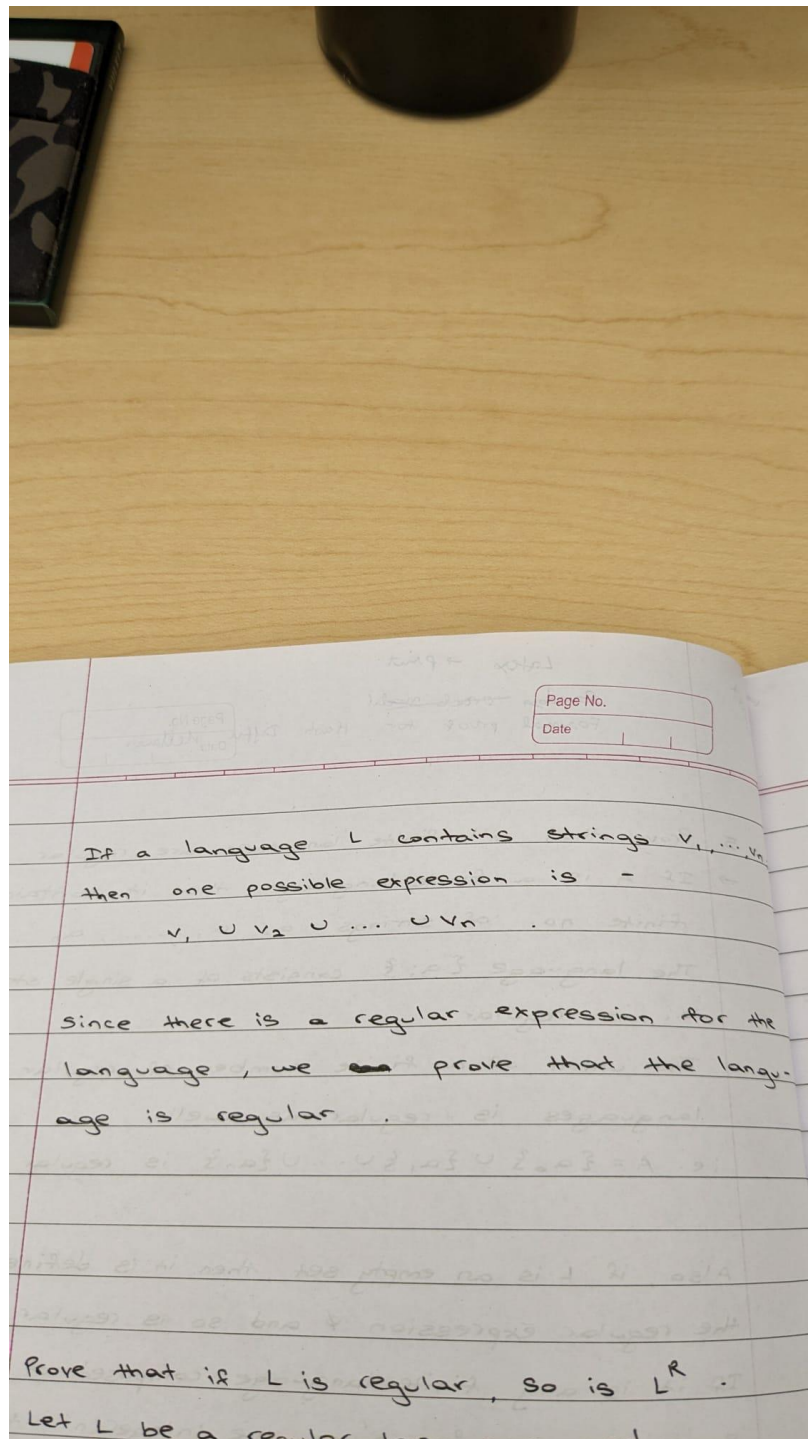 Page No.
Date
If a language L contains strings v₁, ..., vₙ
then one possible expression is -
v₁ ∪ v₂ ∪ ... ∪ vₙ .
Since there is a regular expression for the
language, we prove that the langu-
age is regular .
Prove that if L is regular, so is Lᴿ .
Let L be a regular